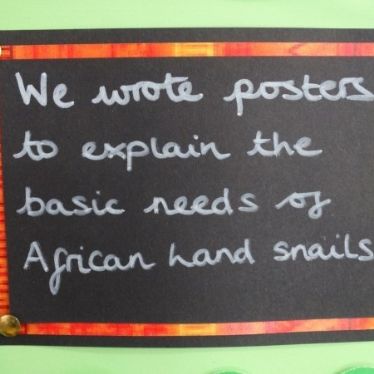 We wrote posters
to explain the
basic needs of
African hand snails